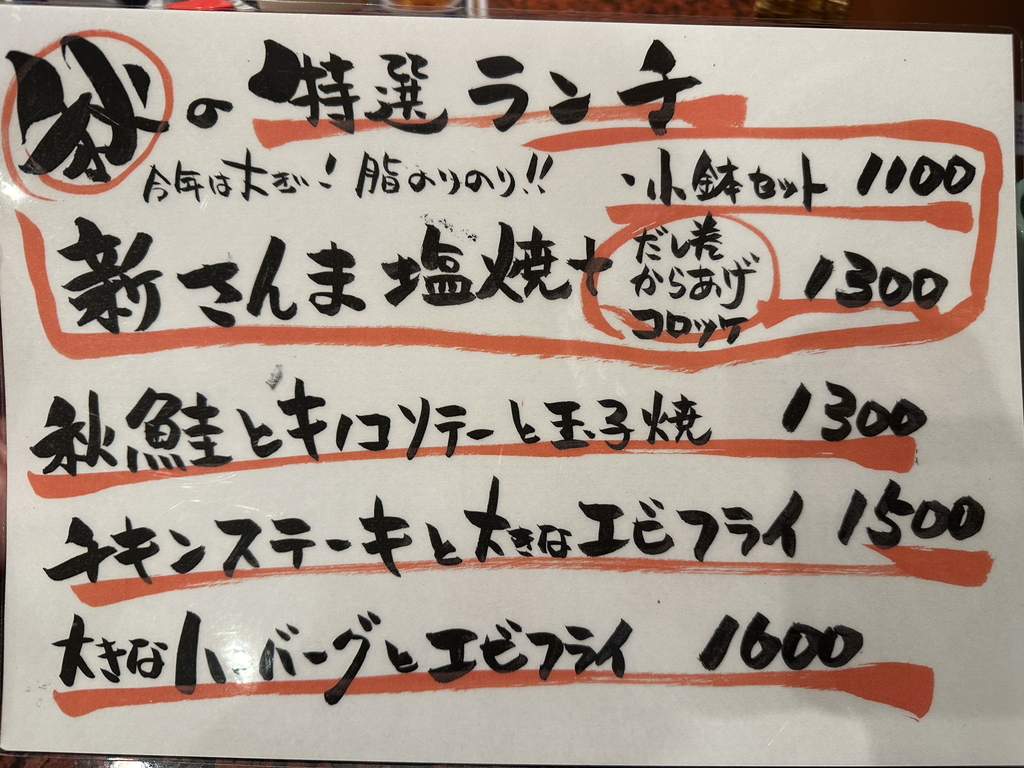 秋の特選ランチ
今年は大きい! 脂のりのり!!
・小鉢セット 1100
新さんま塩焼+
だし巻
からあげ
コロッケ
1300
秋鮭とキノコソテーと玉子焼 1300
チキンステーキと大きなエビフライ 1500
大きなハンバーグとエビフライ 1600